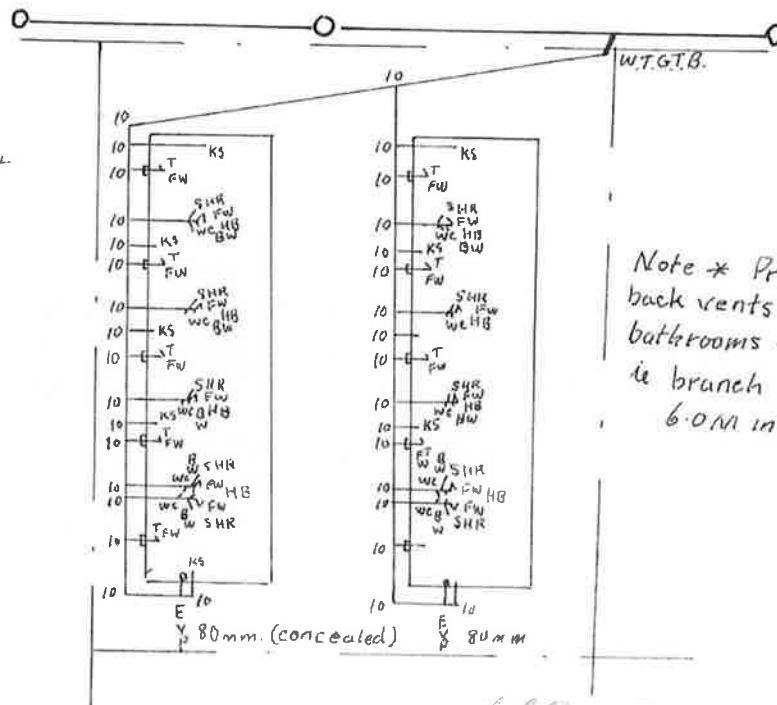 W.T.G.T.B.
10
10
10 KS
10 T
FW
10 SHR
FW
WC HB
BW
10 KS
10 T
FW
10 SHR
FW
WC HB
BW
10 KS
10 T
FW
10 SHR
FW
WC B HB
W
10 KS
10 T
FW
B
W SHR
WC
10 FW
10 HB
WC B FW
W SHR
10 T
FW
KS
10 10
E
V
P 80mm. (concealed)
10 KS
10 T
FW
10 SHR
FW
WC HB
BW
10 KS
10 T
FW
10 SHR
FW
WC HB
10
10 T
FW
10 SHR
FW
WC HB
10 KS
10
SHR
WC
10 FW HB
10 FW
WC B SHR
W
10
10 10
E
80mm
Note * Pr
back vents
bathrooms
ie branch
6.0M in